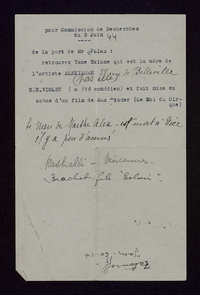 pour Commission de Recherches
du 3 Juin 44
de la part de Mr Palau :
retrouver Tame Maiuse qui est la mère de
l'artiste ALEXIANNE
(pas Mary de Belleville
E.E.VIOLET (a été comédien) et fait mise en
scène d'un film de Max Linder (Le Roi du Cir-
que)
Le Mari de Marthe Alex - est mort à Nice
il y a peu d'années
Rastrelli - Vincennes
Brachet - fils